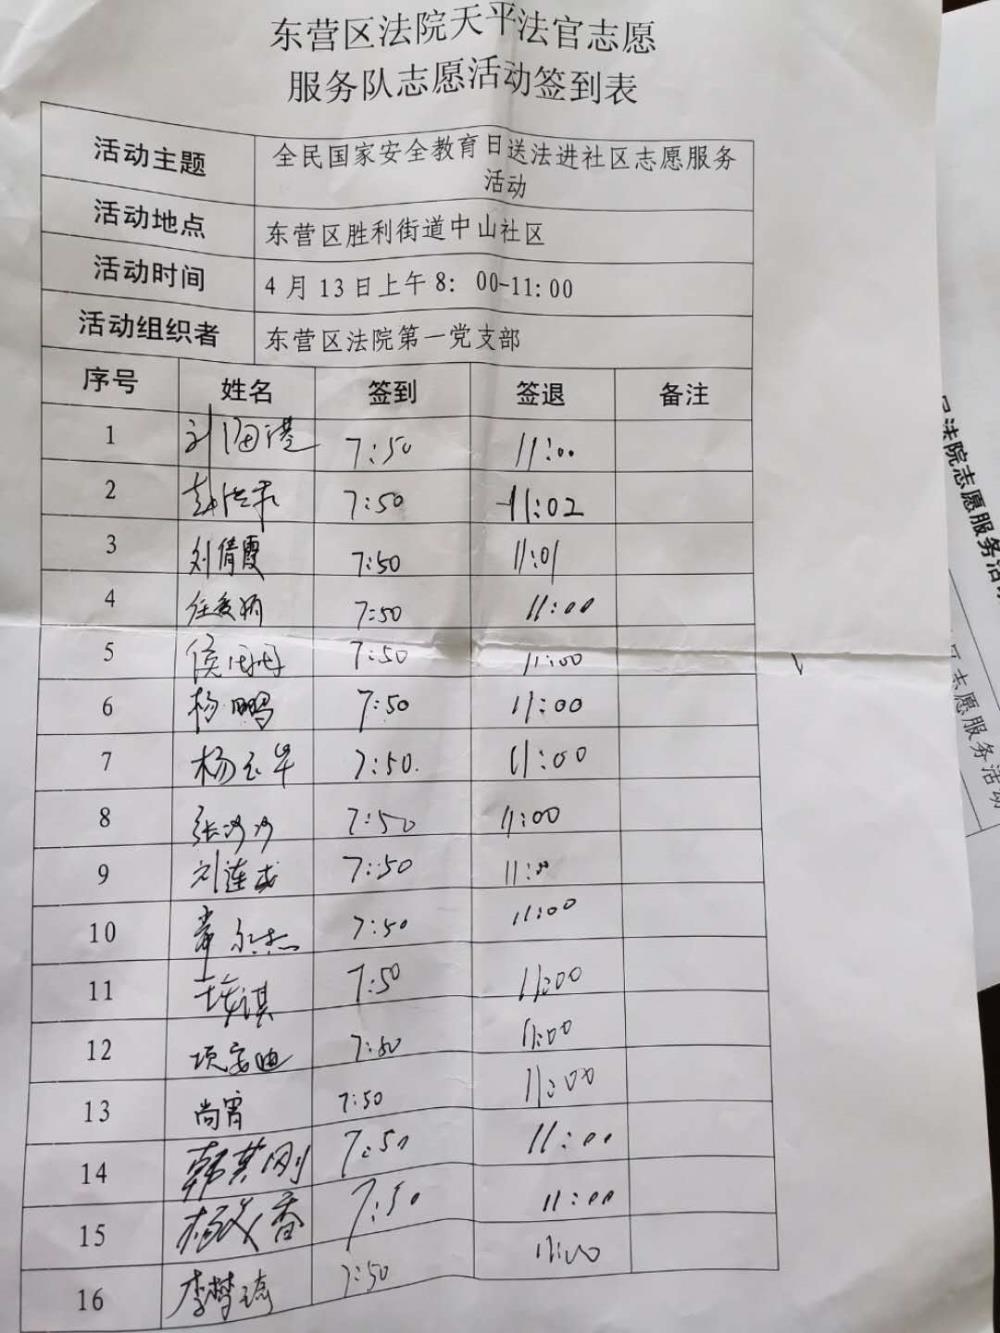 东营区法院天平法官志愿
服务队志愿活动签到表
活动主题 全民国家安全教育日送法进社区志愿服务
活动
活动地点 东营区胜利街道中山社区
活动时间 4月13日上午8：00-11:00
活动组织者 东营区法院第一党支部
序号 姓名 签到 签退 备注
1 刘海港 7:50 11:00
2 7:50 11:02
3 刘倩霞 7:50 11:01
4 7:50 11:00
5 侯丹丹 7:50 11:00
6 杨鹏 7:50 11:00
7 杨玉华 7:50 11:00
8 张沙沙 7:50 11:00
9 刘莲 7:50 11:00
10 7:50 11:00
11 7:50 11:00
12 项 迪 7:50 11:00
13 尚霄 7:50 11:00
14 韩其刚 7:50 11:00
15 杨 香 7:50 11:00
16 李梦琦 7:50 11:00
法院志愿服务活
志愿服务活动